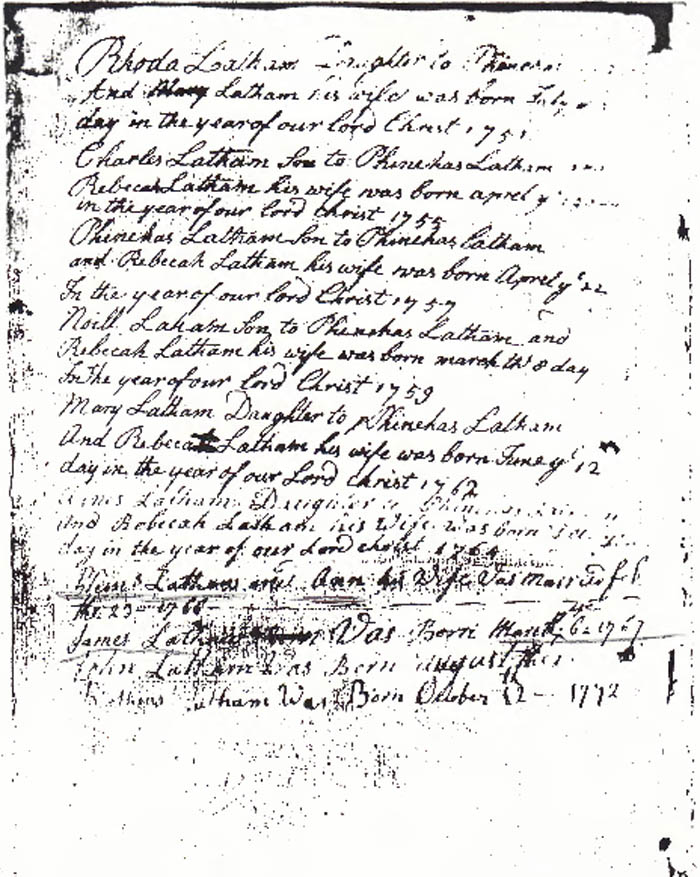 Rhoda Latham Daughter to
And Mary Latham his wife was born July
day in the year of our lord Christ 1751
Charles Latham Son to Phinehas Latham
Rebecah Latham his wife was born aprel ye
in the year of our lord Christ 1755
Phinehas Latham Son to Phinehas Latham
and Rebecah Latham his wife was born Aprel ye 22
In the year of our lord Christ 1757
Noill Laham Son to Phinehas Latham and
Rebecah Latham his wife was born march th 8 day
In the year of our lord Christ 1759
Mary Latham Daughter to Phinehas Latham
And Rebecah Latham his wife was born June ye 12
day in the year of our Lord Christ 1762
Latham Daughter
And Rebecah Latham his Wife was born
day in the year of our Lord christ 1764
Latham and Ann his Wife Was Married
the 23 1766
James Latham Was Born 6 1767
John Latham Was Born August
Latham Was Born October 12 1772